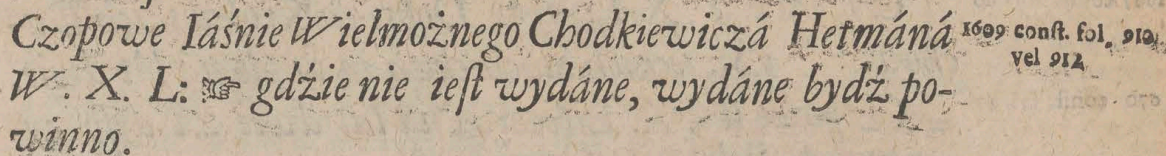 Czopowe Iáśnie Wielmożnego Chodkiewiczá Hetmáná
W. X. L: ☞ gdźie nie ieſt wydáne, wydáne bydź po-
winno.
1609 conſt. fol. 910.
vel 912